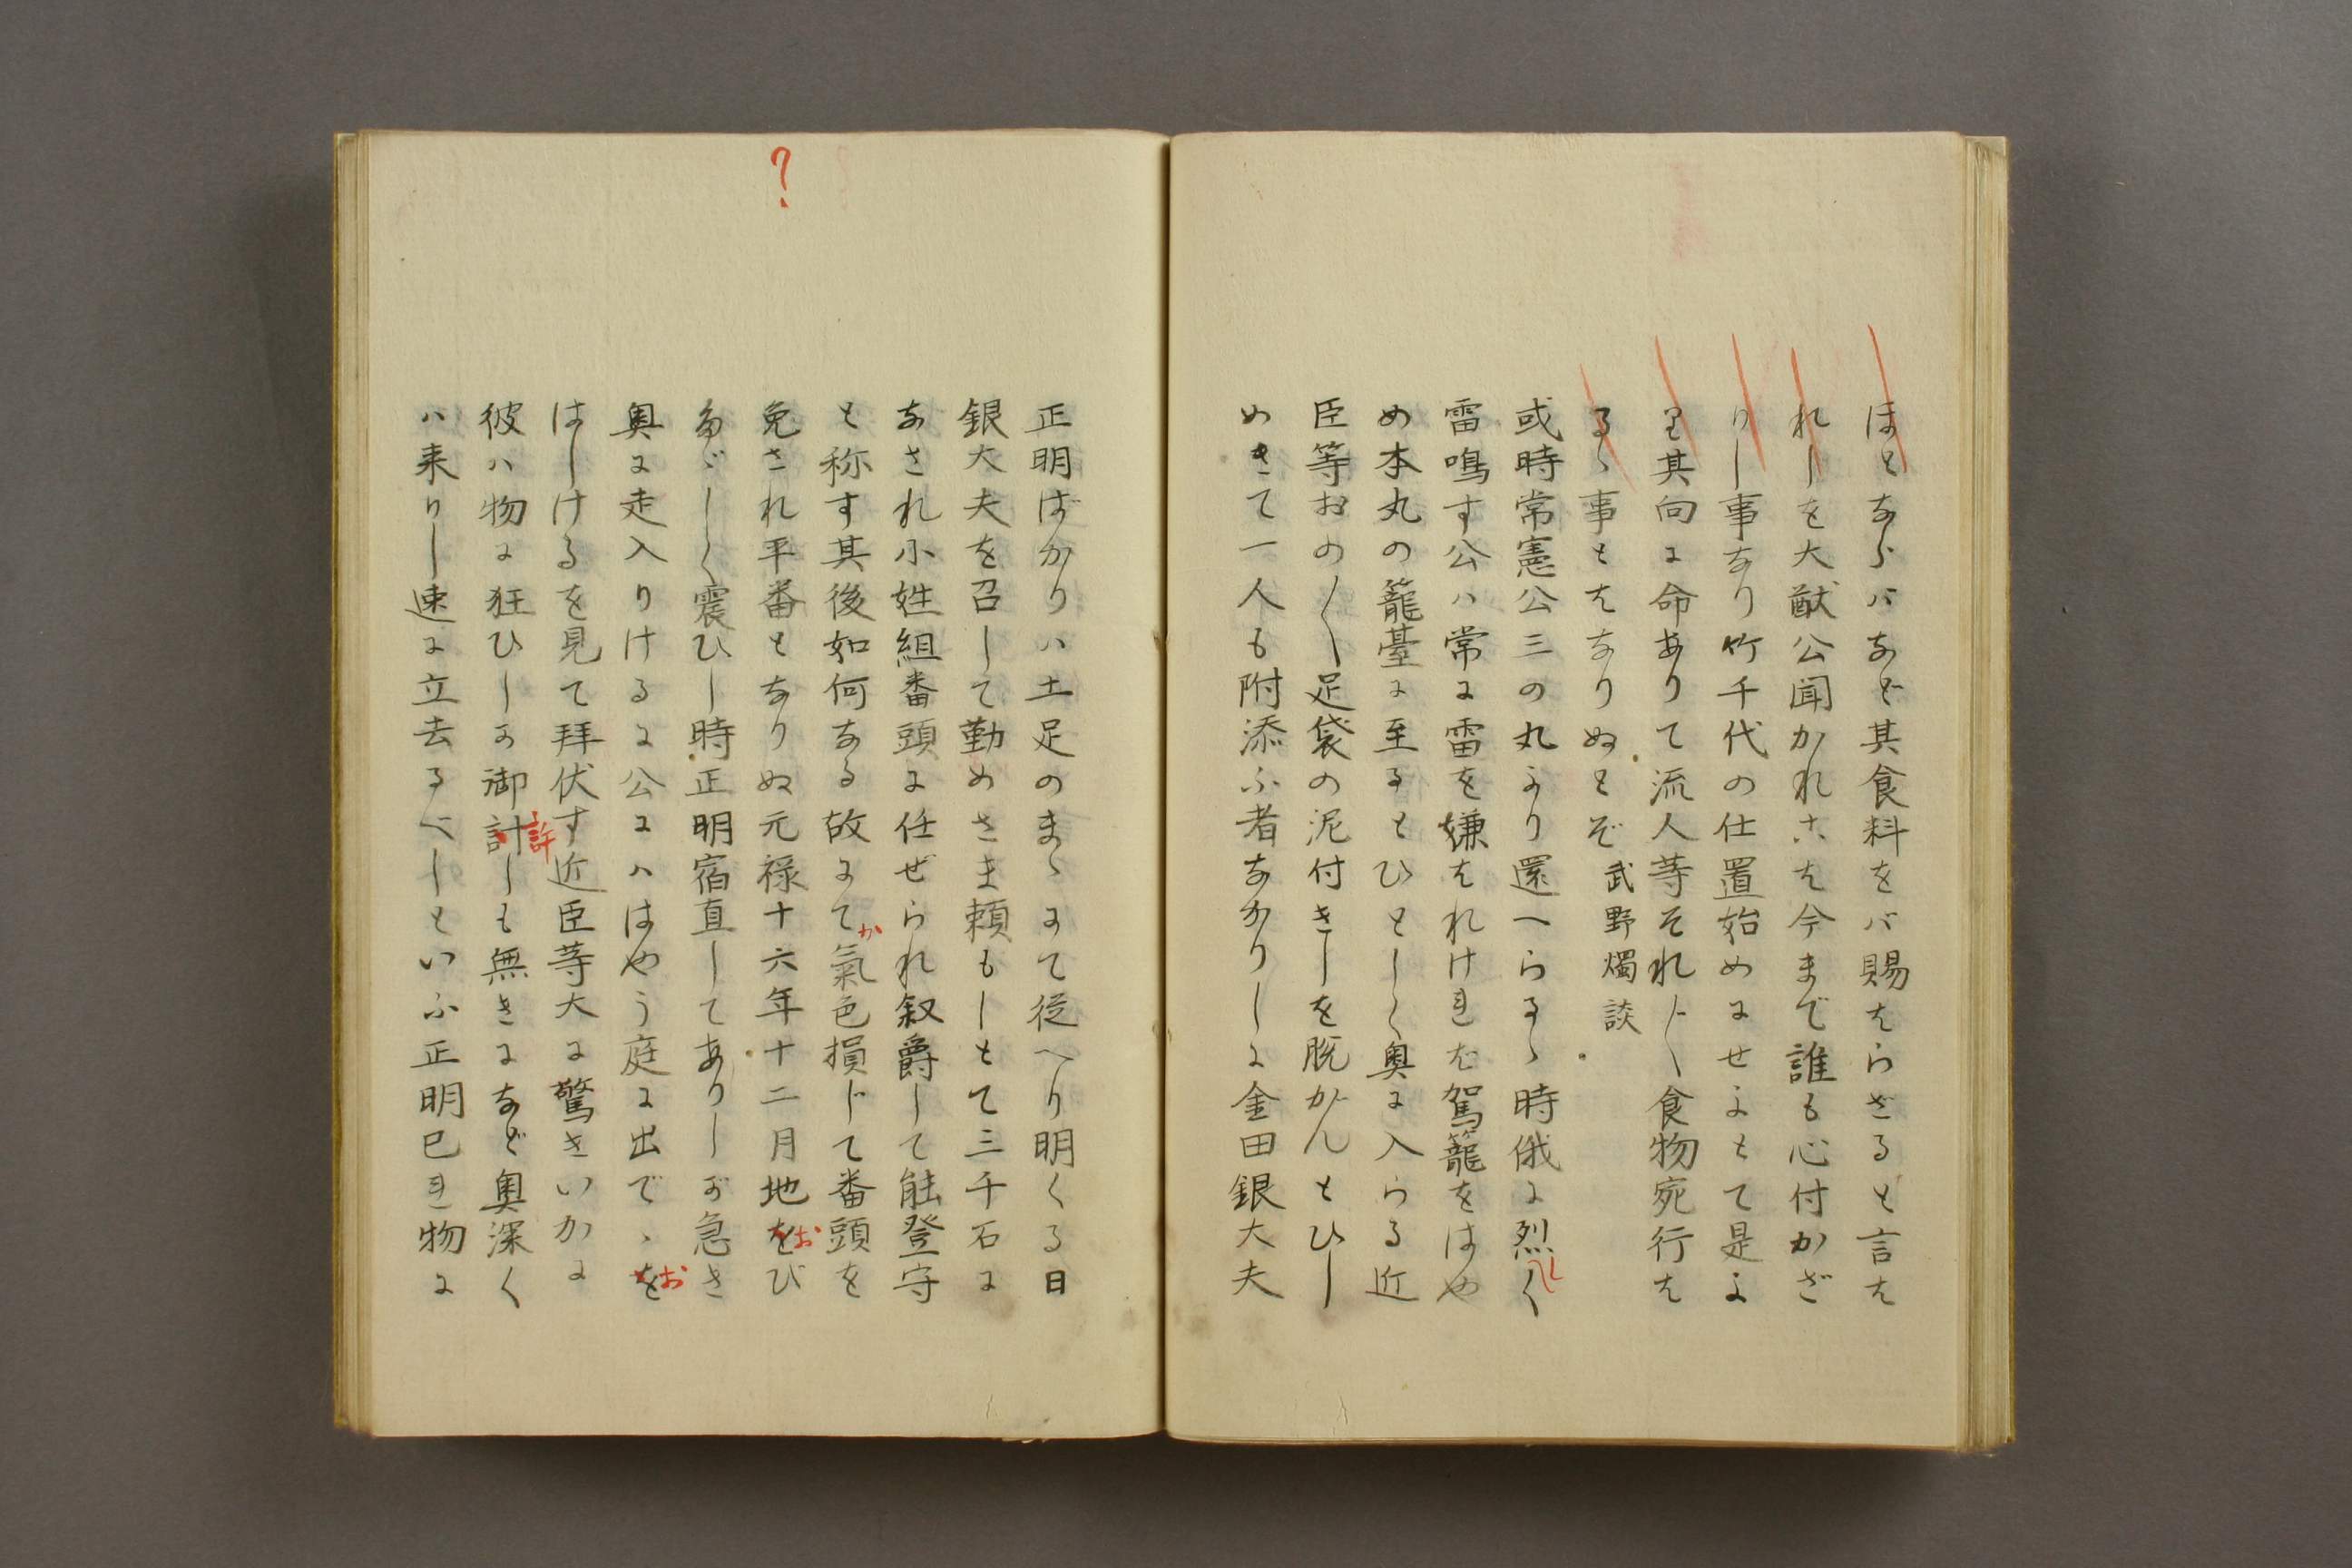 ほとならバなど其食料をバ賜はらざると言は
れしを大猷公聞かれさは今まで誰も心付かざ
りし事なり竹千代の仕置始めにせよとて是よ
り其向に命ありて流人等それ〳〵食物宛行は
るゝ事とはなりぬとぞ 武野燭談
或時常憲公三の丸より還へらるゝ時俄に烈しく
雷鳴す公ハ常に雷を嫌はれければ駕籠をはや
め本丸の籠臺に至るとひとしく奥に入らる近
臣等おの〳〵足袋の泥付きしを脱がんとひし
めきて一人も附添ふ者なかりしに金田銀大夫
?
正明ばかりハ土足のまゝにて従へり明くる日
銀大夫を召して勤めさま頼もしとて三千石に
なされ小姓組番頭に任ぜられ叙爵して能登守
と称す其後如何なる故にてか氣色損じて番頭を
免され平番となりぬ元禄十六年十二月地をおび
たゞしく震ひし時正明宿直してありしが急き
奥に走入りけるに公にハはやう庭に出でゝをお
はしけるを見て拝伏す近臣等大に驚きいかに
彼ハ物に狂ひしか御計許しも無きになど奥深く
ハ来りし速に立去るべしといふ正明已れ物に